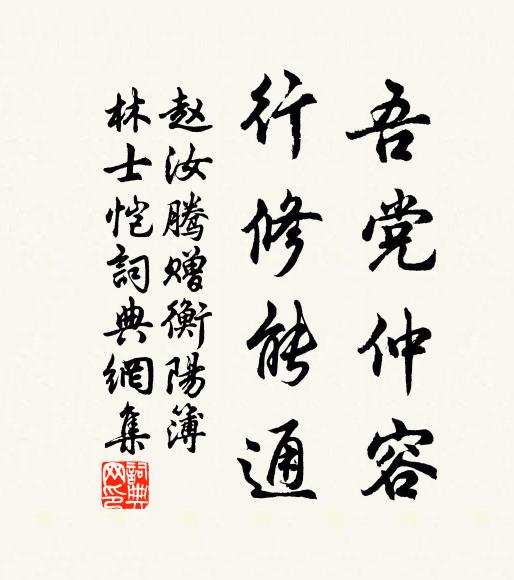 吾党仲容
行修能通
赵汝腾赠衡陽簿
林士恺詞典網集
詞典網印